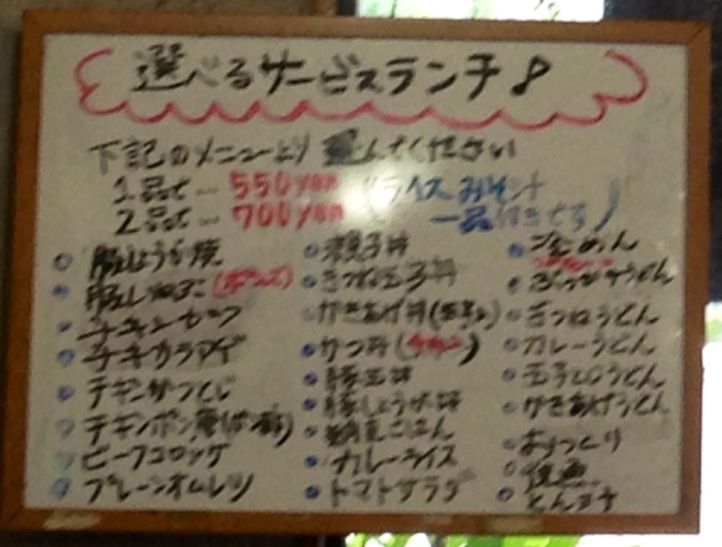 選べるサービスランチ♪
下記のメニューより選んでください
1品で… 550yen (ライス みそ汁
2品で… 700yen 一品付きです)
豚しょうが焼
豚しゃぶ (ポンズ)
チキンカツ
チキカラアゲ
チキンかつとじ
チキンポン酢
ビーフコロッケ
プレーンオムレツ
親子丼
きつね玉子丼
かきあげ丼(玉子)
かつ丼(チキン)
豚玉丼
豚しょうが丼
ごはん
カレーライス
トマトサラダ
めん
ぶっかけうどん
きつねうどん
カレーうどん
玉子とじうどん
かきあげうどん